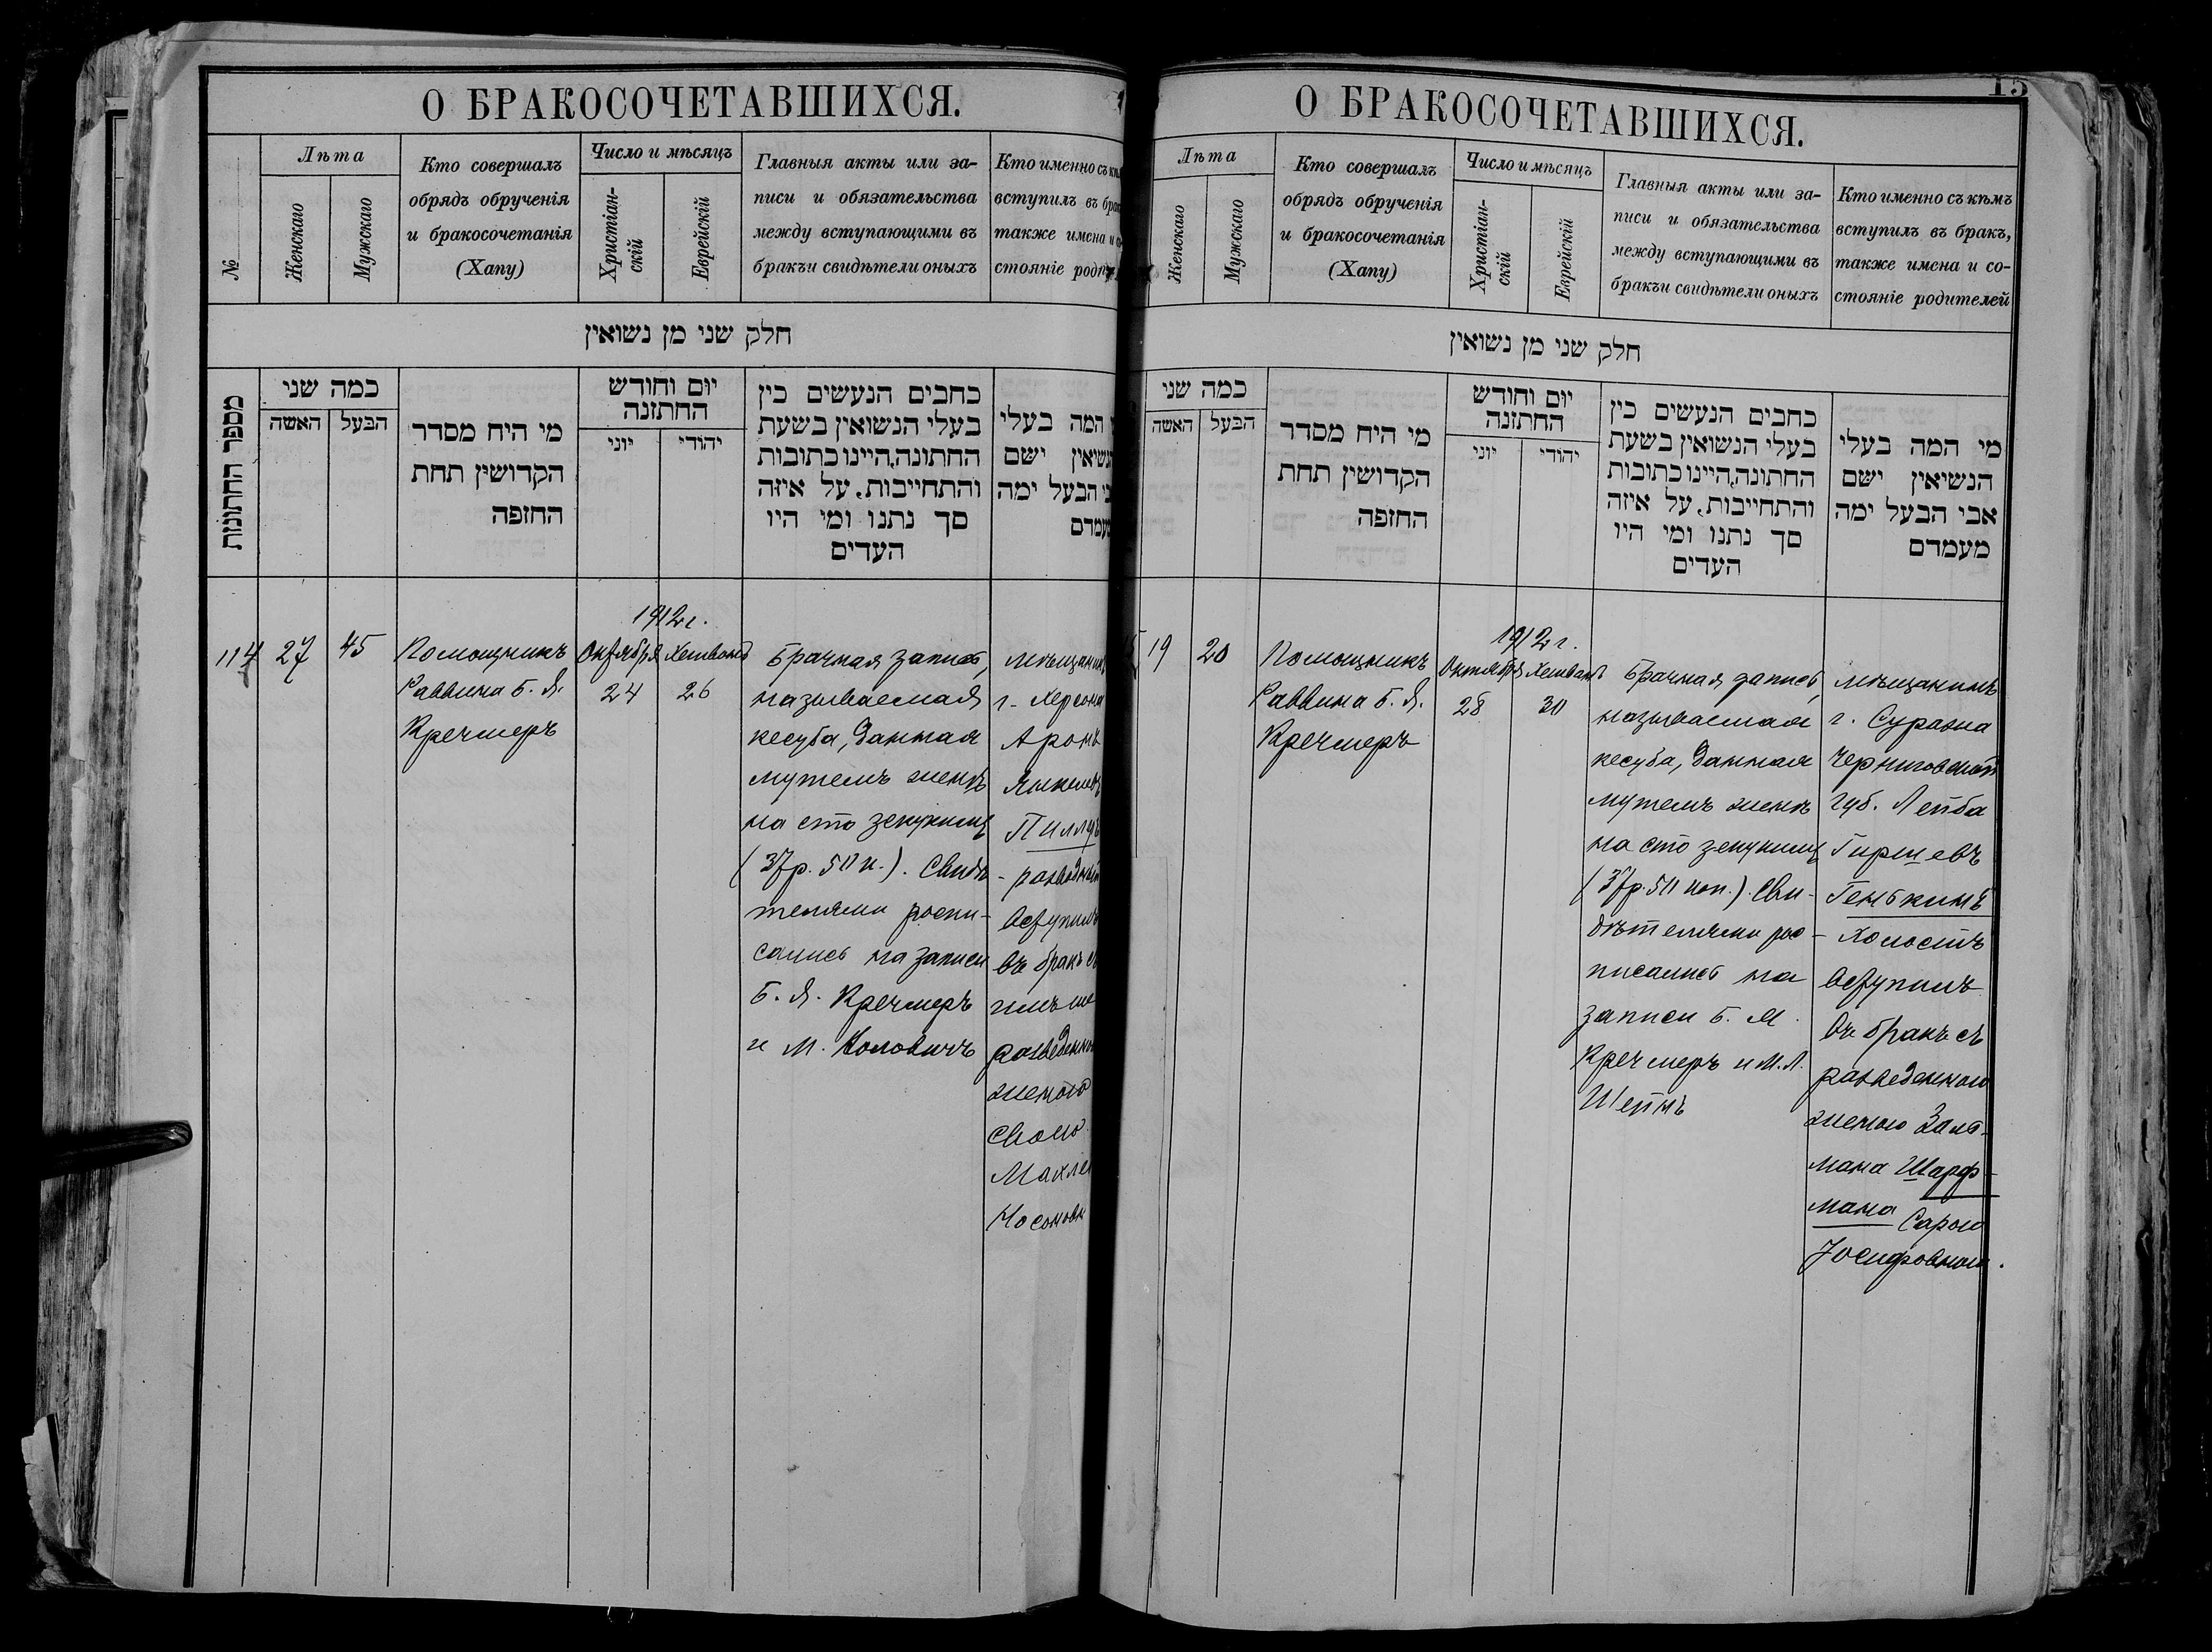 О БРАКОСОЧЕТАВШИХСЯ.
№
Лѣта
Женскаго
Мужскаго
Кто совершалъ
обрядъ обрученія
и бракосочетанія
(Хапу)
Число и мѣсяцъ
Христіан-
скій
Еврейскій
Главныя акты или за-
писи и обязательства
между вступающими въ
бракъи свидѣтели оныхъ
Кто именно съ
вступилъ въ
также имена и
стояніе
חלק שני מן נשואין
מספר החתונות
כמה שני
האשה
הבעל
מי היח מסדר
הקדושין תחת
החזפה
יום וחודש
החתזנה
יוני
יהודי
כחבים הנעשים כין
בעלי הנשואין בשעת
החתונה,היינו כתובות
והתחייבות, על איזה
סך נתנו ומי היו
העדים
המה בעלי
ישם
הבעל ימה
114
27
45
Помощникъ
Раввина Б. Я.
Кречмеръ
1912 г.
Октября
24
Хешванъ
26
Брачная запись,
называемая
кесуба, данная
мужемъ женѣ
на сто зекукимъ
(37р. 50 к.). Свидѣ-
телями роспи-
сались на записи
Б. Я. Кречмеръ
и М.
г. Херсона
Аронъ
Вступилъ
въ бракъ
женою
свою
О БРАКОСОЧЕТАВШИХСЯ.
15
Лѣта
Женскаго
Мужскаго
Кто совершалъ
обрядъ обрученія
и бракосочетанія
(Хапу)
Число и мѣсяцъ
Христіан-
скій
Еврейскій
Главныя акты или за-
писи и обязательства
между вступающими въ
бракъи свидѣтели оныхъ
Кто именно съ кѣмъ
вступилъ въ бракъ,
также имена и со-
стояніе родителей
חלק שני מן נשואין
כמה שני
האשה
הבעל
מי היח מסדר
הקדושין תחת
החזפה
יום וחודש
החתזנה
יוני
יהודי
כחבים הנעשים כין
בעלי הנשואין בשעת
החתונה,היינו כתובות
והתחייבות, על איזה
סך נתנו ומי היו
העדים
מי המה בעלי
הנשיאין ישם
אבי הבעל ימה
מעמדם
19
20
Помощникъ
Раввина Б. Я.
Кречмеръ
1912 г.
Октября
28
Хешванъ
30
Брачная запись,
называемая
кесуба, данная
мужемъ женѣ
на сто зекукимъ
(37р. 50 коп.). Сви-
дѣтелями рос-
писались на
записи Б. М.
Кречмеръ и М. Л.
Штейнъ
Мѣщанинъ
г. Суража
Черниговской
губ. Лейба
Гиршевъ
Генькинъ
- холостъ
Вступилъ
въ бракъ съ
разведенною
женою Заль-
мана Шарф-
мана Сарою
Іосифовною.